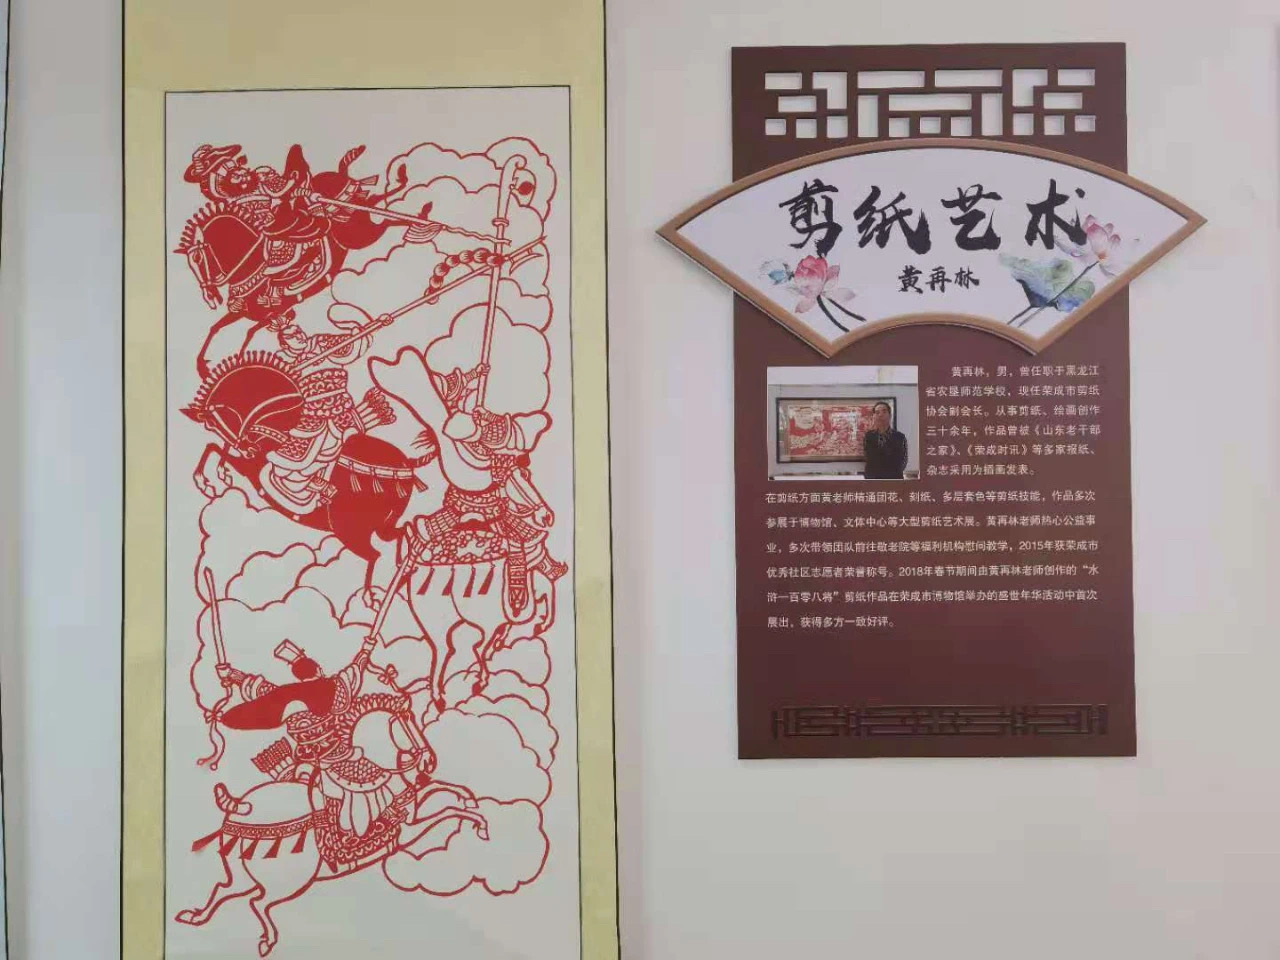 剪纸艺术
黄再林
黄再林，男，曾任职于黑龙江
省农垦师范学校，现任荣成市剪纸
协会副会长。从事剪纸、绘画创作
三十余年，作品曾被《山东老干部
之家》、《荣成时讯》等多家报纸、
杂志采用为插画发表。
在剪纸方面黄老师精通团花、刻纸、多层套色等剪纸技能，作品多次
参展于博物馆、文体中心等大型剪纸艺术展。黄再林老师热心公益事
业，多次带领团队前往敬老院等福利机构慰问教学，2015年获荣成市
优秀社区志愿者荣誉称号。2018年春节期间由黄再林老师创作的“水
浒一百零八将”剪纸作品在荣成市博物馆举办的盛世年华活动中首次
展出，获得多方一致好评。